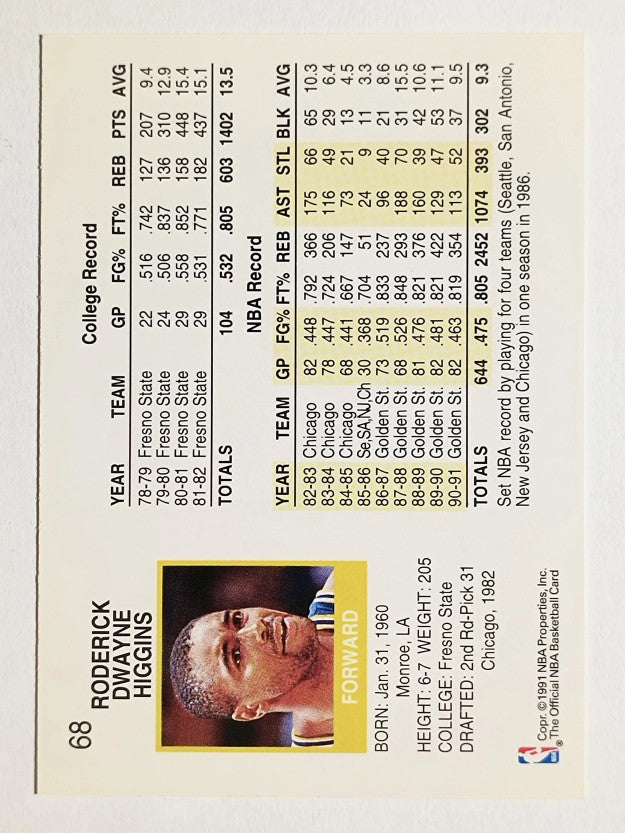 68
RODERICK
DWAYNE
HIGGINS
FORWARD
BORN: Jan. 31, 1960
Monroe, LA
HEIGHT: 6-7 WEIGHT: 205
COLLEGE: Fresno State
DRAFTED: 2nd Rd-Pick 31
Chicago, 1982
Copr. ©1991 NBA Properties, Inc.
® The Official NBA Basketball Card
College Record
YEAR TEAM GP FG% FT% REB PTS AVG
78-79 Fresno State 22 .516 .742 127 207 9.4
79-80 Fresno State 24 .506 .837 136 310 12.9
80-81 Fresno State 29 .558 .852 158 448 15.4
81-82 Fresno State 29 .531 .771 182 437 15.1
TOTALS 104 .532 .805 603 1402 13.5
NBA Record
YEAR TEAM GP FG% FT% REB AST STL BLK AVG
82-83 Chicago 82 .448 .792 366 175 66 65 10.3
83-84 Chicago 78 .447 .724 206 116 49 29 6.4
84-85 Chicago 68 .441 .667 147 73 21 13 4.5
85-86 Se,SA,NJ,Ch 30 .368 .704 51 24 9 11 3.3
86-87 Golden St. 73 .519 .833 237 96 40 21 8.6
87-88 Golden St. 68 .526 .848 293 188 70 31 15.5
88-89 Golden St. 81 .476 .821 376 160 39 42 10.6
89-90 Golden St. 82 .481 .821 422 129 47 53 11.1
90-91 Golden St. 82 .463 .819 354 113 52 37 9.5
TOTALS 644 .475 .805 2452 1074 393 302 9.3
Set NBA record by playing for four teams (Seattle, San Antonio,
New Jersey and Chicago) in one season in 1986.